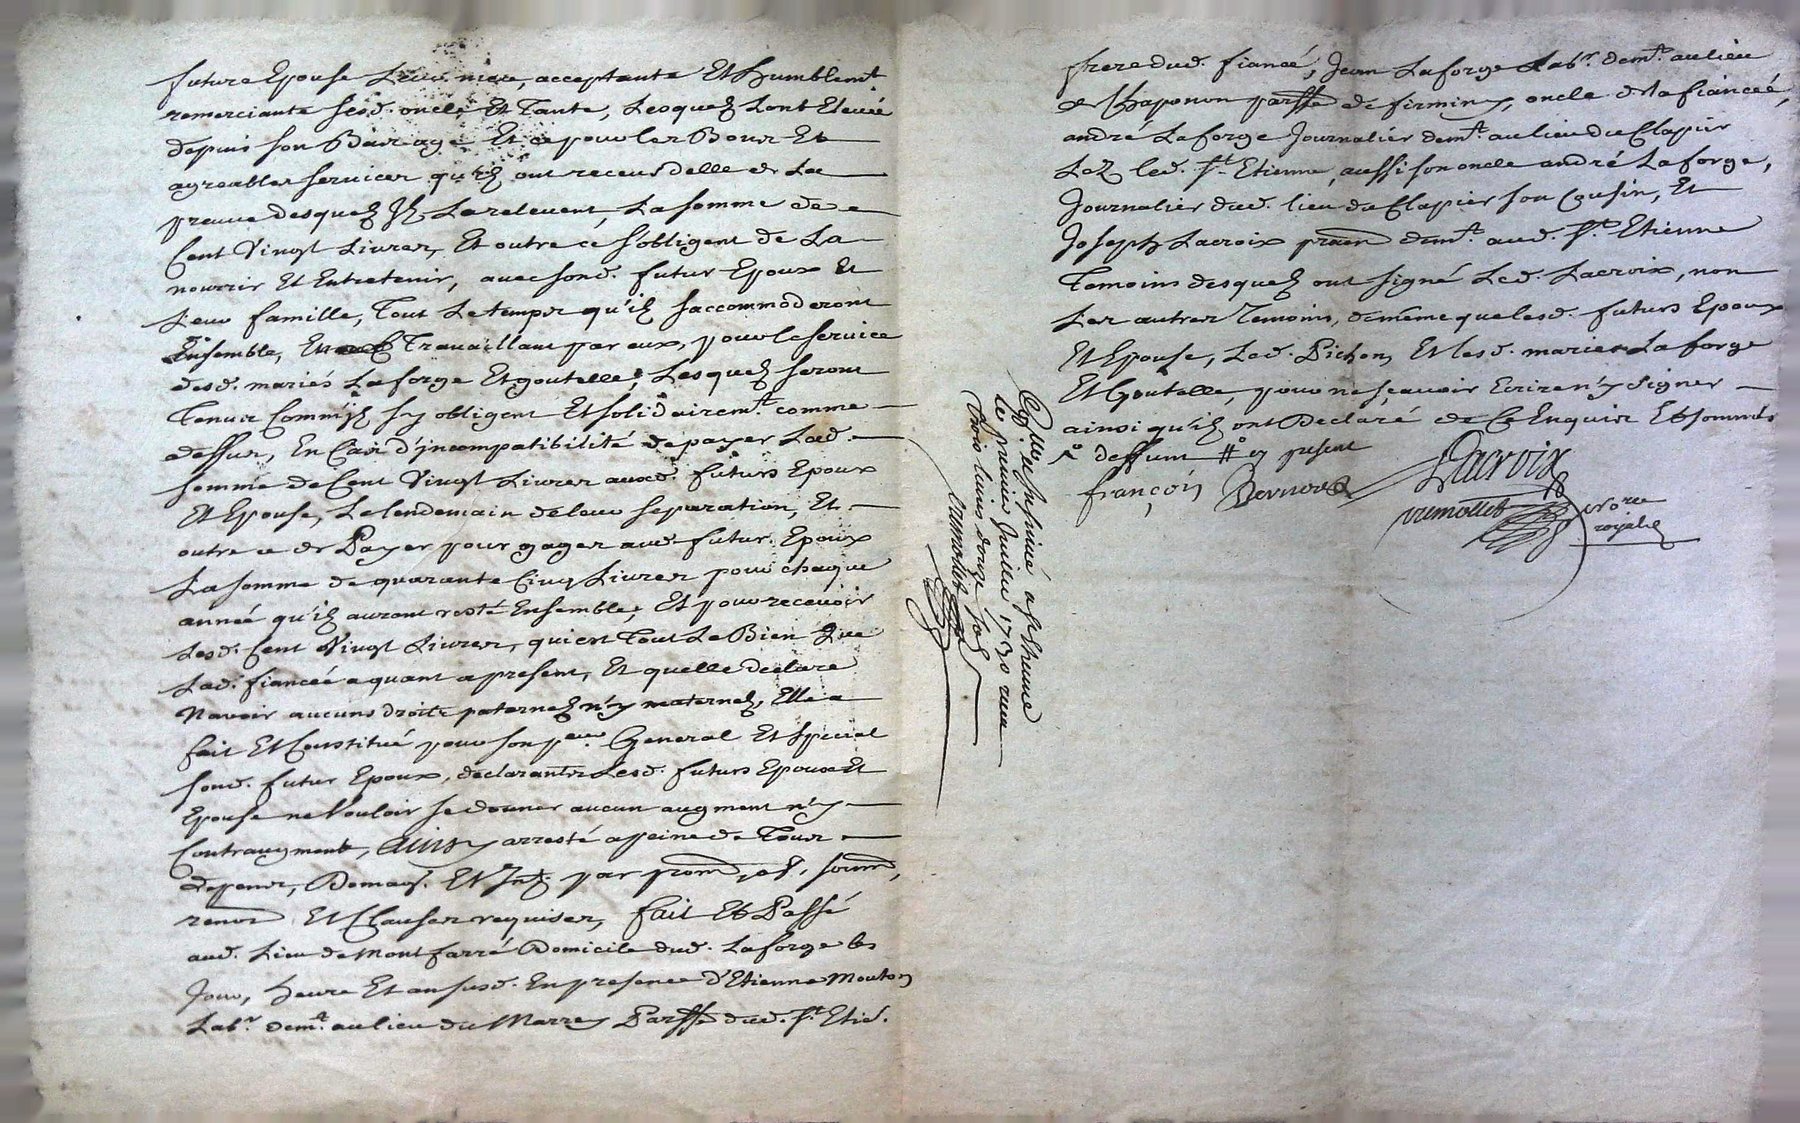 future Epouse Leur niece, acceptante Et humblem.t
remerciante sesd. oncle Et Tante, Lesquelz Lont Elevée
depuis son Bas age Et ce pour les Bons Et
agreables services qu'ilz ont receus delle de La
preuve desquelz Jlz La relevent, La somme de
Cent Vingt Livres, Et outre ce s'obligent de La
nourrir Et Entretenir, avec sond. futur Epoux Et
Leur famille, Tout Le temps qu'ilz saccommoderont
Ensemble, En Travaillant par eux, pour le service
desd. mariés Laforge Et goutelle, Lesquelz seront
Tenus Comm'jlz sy obligent Et solidairem.t comme
dessus, En Cas d'jncompatibilité de payer Lad.
somme de Cent Vingt Livres auxd. futurs Epoux
Et Epouse, Le lendemain de leur separation, Et
outre ce de Payer pour gages aud. futur Epoux
La somme de quarante Cinq Livres pour chaque
année qu'ilz auront resté Ensemble, Et pour recevoir
Lesd. Cent Vingt Livres, qui est Tout Le Bien Que
Lad. fiancée a quant a present, Et quelle declare
Navoir aucuns droits paternelz n'y maternelz, Elle a
fait Et Constitué pour son p.eur General Et special
sond. futur Epoux, declarants Lesd. futurs Epoux Et
Epouse ne Vouloir se donner aucun augment n'y
Contraugment, Ainsy arresté a peine de Tous
depens, Domag. Et Jnt. par prom, obl, soum,
renon Et Clauses requises, fait Et Passé
aud. Lieu de Montfarré Domicile dud. Laforge les
Jour, heure Et an susd. En presence d'Etienne Mouton
Lab.r dem.t au lieu du Marrey Parsse dud. S.t Etie.
Con.llé et Insinué a St Etienne
le premier Juillet 1730 receu
trois livres douze sols
Vremollet
frere dud. fiancé, Jean Laforge Lab.r dem.t au lieu
de Chaponon parsse de firminy, oncle de la fiancée,
andré Laforge Journalier dem.t au lieu du Clapier
Lez led. S.t Etienne, aussi son oncle andré Laforge,
Journalier dud. lieu du Clapier son Cousin, Et
Joseph Lacroix praen dem.t aud. S.t Etienne
Temoins desquelz ont signé Led. Lacroix, non
Les autres Temoins, de meme que lesd. futurs Epoux
Et Epouse, Led. Pichon, Et lesd. mariés Laforge
Et Goutelle, pour ne sçavoir Ecrire n'y signer
ainsi qu'ilz ont Declaré de Ce Enquis Et sommés
dessunt # en present
françois
Lacroix
vremollet no.re
royal